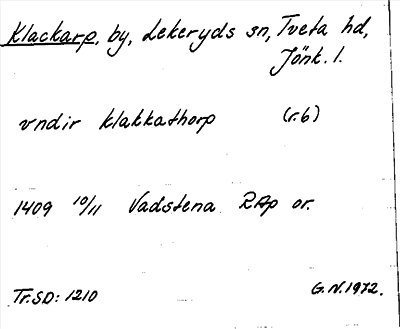 Klackarp, by, Lekeryds sn, Tveta hd,
Jönk. l.
vndir klakkathorp (r.6)
1409 10/11 Vadstena RAp or.
Tr.SD: 1210 G.N.1972.